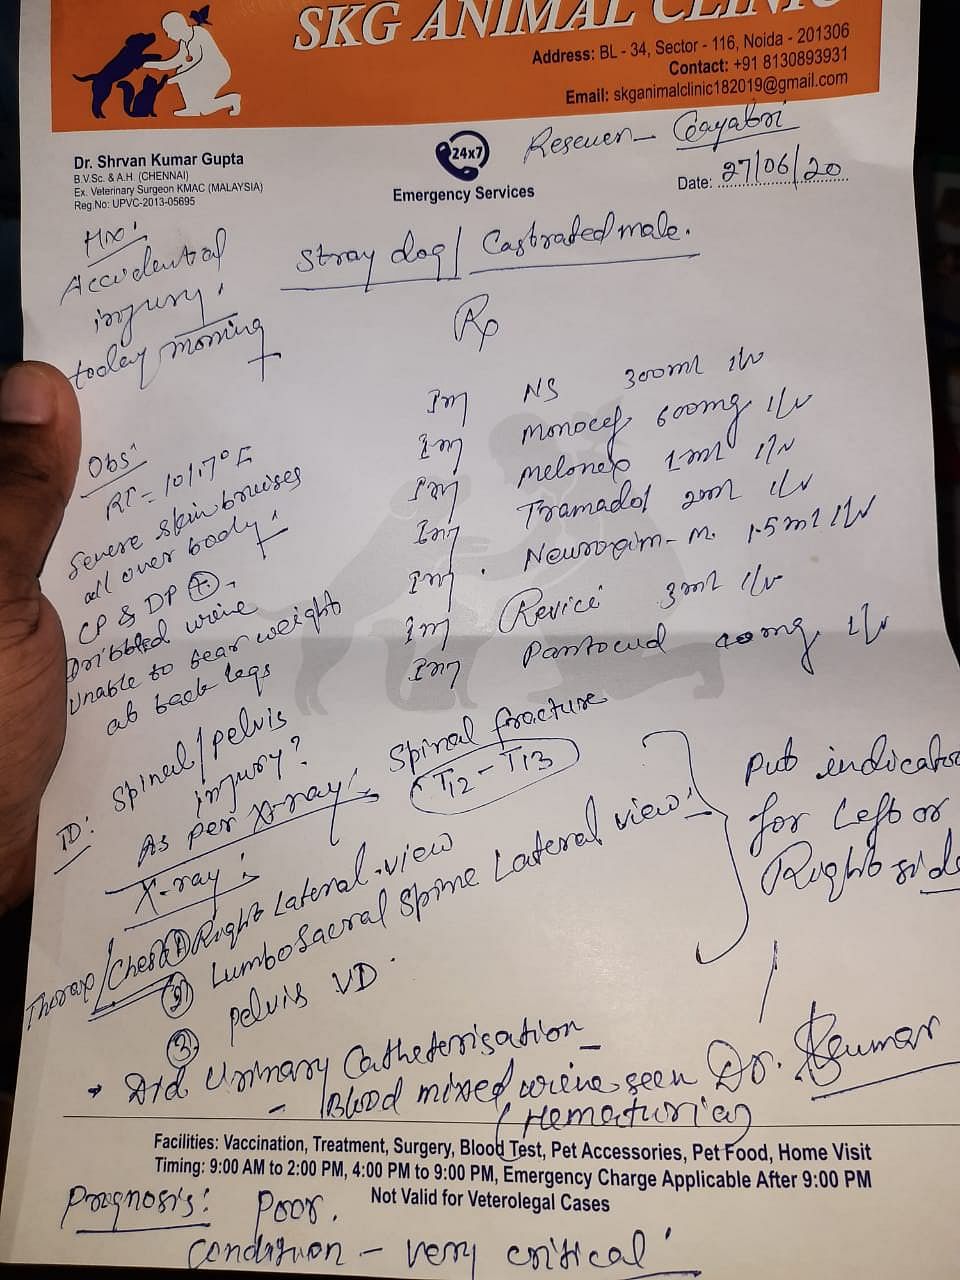 SKG ANIMAL CLINIC
Address: BL - 34, Sector - 116, Noida - 201306
Contact: +91 8130893931
Email: skganimalclinic182019@gmail.com
Dr. Shrvan Kumar Gupta
B.V.Sc. & A.H. (CHENNAI)
Ex. Veterinary Surgeon KMAC (MALAYSIA)
Reg.No: UPVC-2013-05695
24x7
Emergency Services
Rescuer - Gayatri
Date: 27/06/20
Hx:
Accidental
injury.
today morning
Stray dog / Castrated male.
Rp
Inj NS 300ml I/V
Inj Monocef 600mg I/V
Inj Melonex 1ml I/V
Inj Tramadol 2ml I/V
Inj Neuroxim-M. 1.5ml I/V
Inj Revici 3ml I/V
Inj Pantocid 40mg I/V
Obs:
RT = 101.7°F
Severe skin bruises
all over body.
CP & DP +
Dribbled urine
Unable to bear weight
at back legs
TD: Spinal/pelvis
injury?
As per X-ray: Spinal fracture
T12 - T13
X-ray:
Thorax/Chest 1) Right Lateral view
2) Lumbosacral Spine Lateral view
3) Pelvis VD.
Put indicator
for Left or
Right side
Did Urinary Catheterisation
- Blood mixed urine seen
(Hematuria)
Dr. Skumar
Facilities: Vaccination, Treatment, Surgery, Blood Test, Pet Accessories, Pet Food, Home Visit
Timing: 9:00 AM to 2:00 PM, 4:00 PM to 9:00 PM, Emergency Charge Applicable After 9:00 PM
Not Valid for Veterolegal Cases
Prognosis: Poor.
Condition - very critical